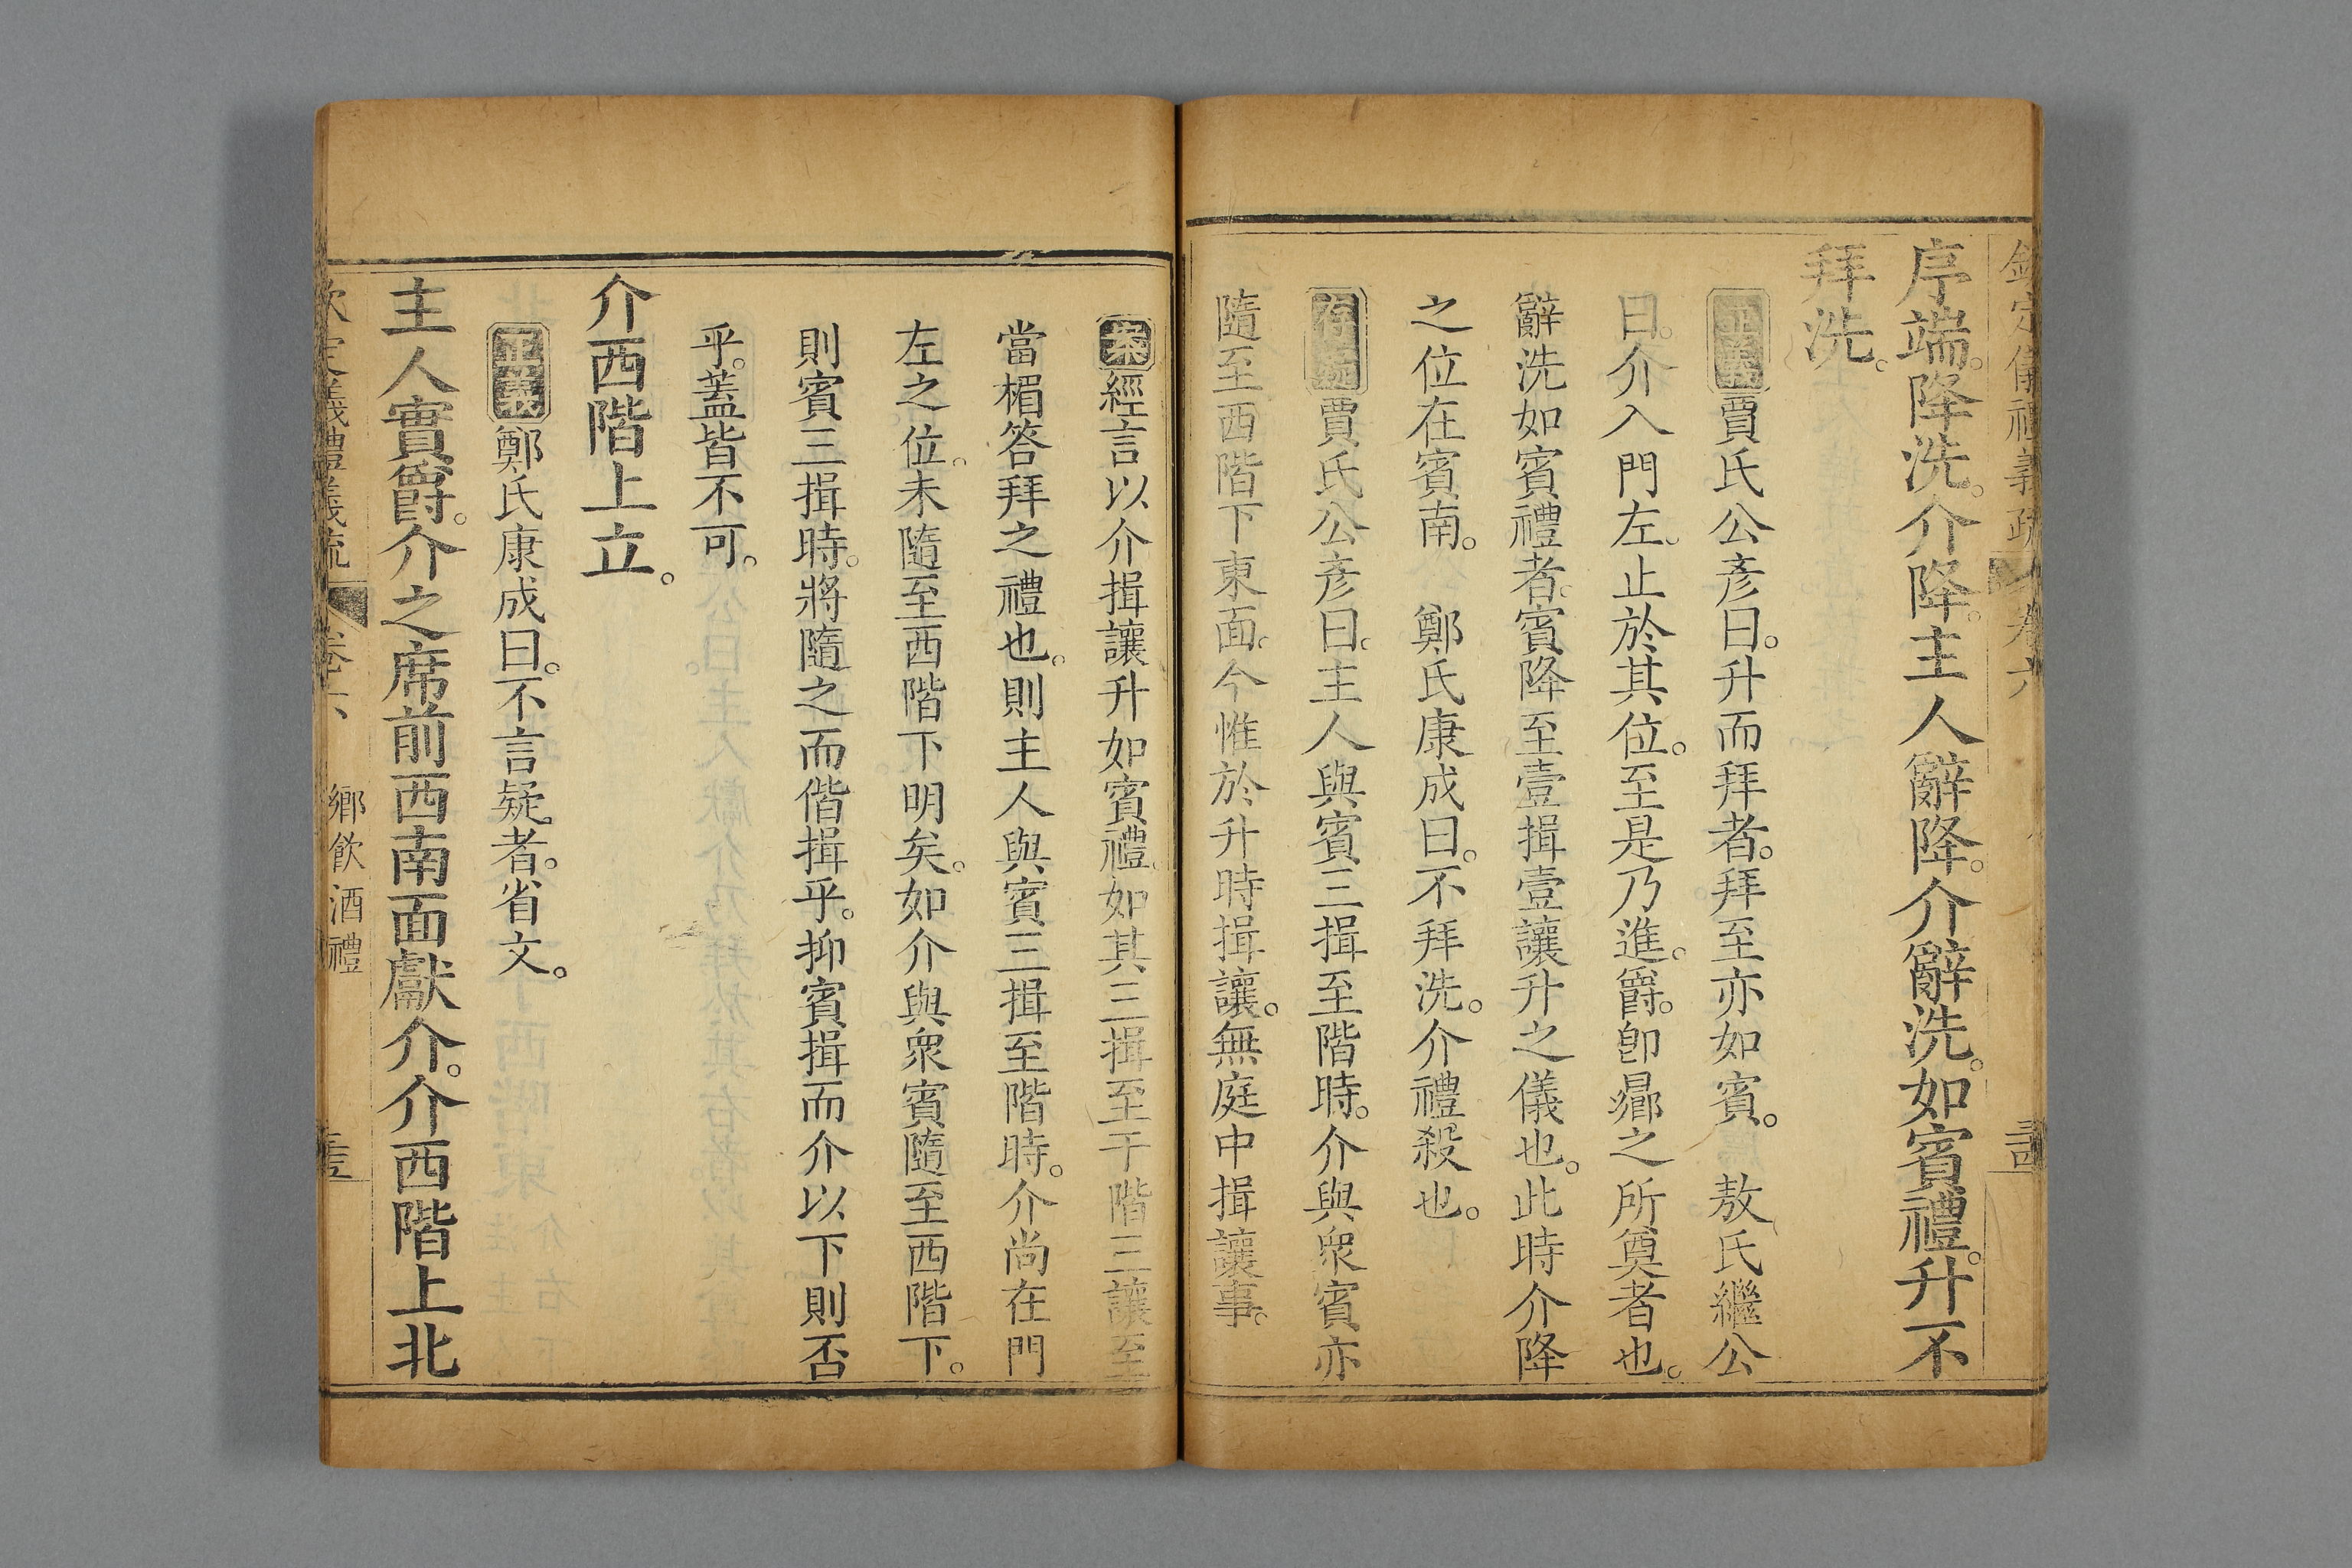 欽定儀禮義疏 卷六
序端。降洗。介降。主人辭降。介辭洗。如賓禮。升不
拜洗。
正義賈氏公彥曰。升而拜者。拜至亦如賓。 敖氏繼公
曰。介入門左。止於其位。至是乃進。爵。卽曏之所奠者也。
辭洗如賓禮者。賓降至壹揖壹讓升之儀也。此時介降
之位在賓南。 鄭氏康成曰。不拜洗。介禮殺也。
存疑賈氏公彥曰。主人與賓三揖至階時。介與衆賓亦
隨至西階下東面。今惟於升時揖讓。無庭中揖讓事。
案經言以介揖讓升如賓禮。如其三揖至于階三讓至
當楣答拜之禮也。則主人與賓三揖至階時。介尚在門
左之位。未隨至西階下明矣。如介與衆賓隨至西階下。
則賓三揖時。將隨之而偕揖乎。抑賓揖而介以下則否
乎。蓋皆不可。
介西階上立。
正義鄭氏康成曰。不言疑者。省文。
主人實爵。介之席前西南面獻介。介西階上北
欽定義禮義疏 卷六 鄉飲酒禮